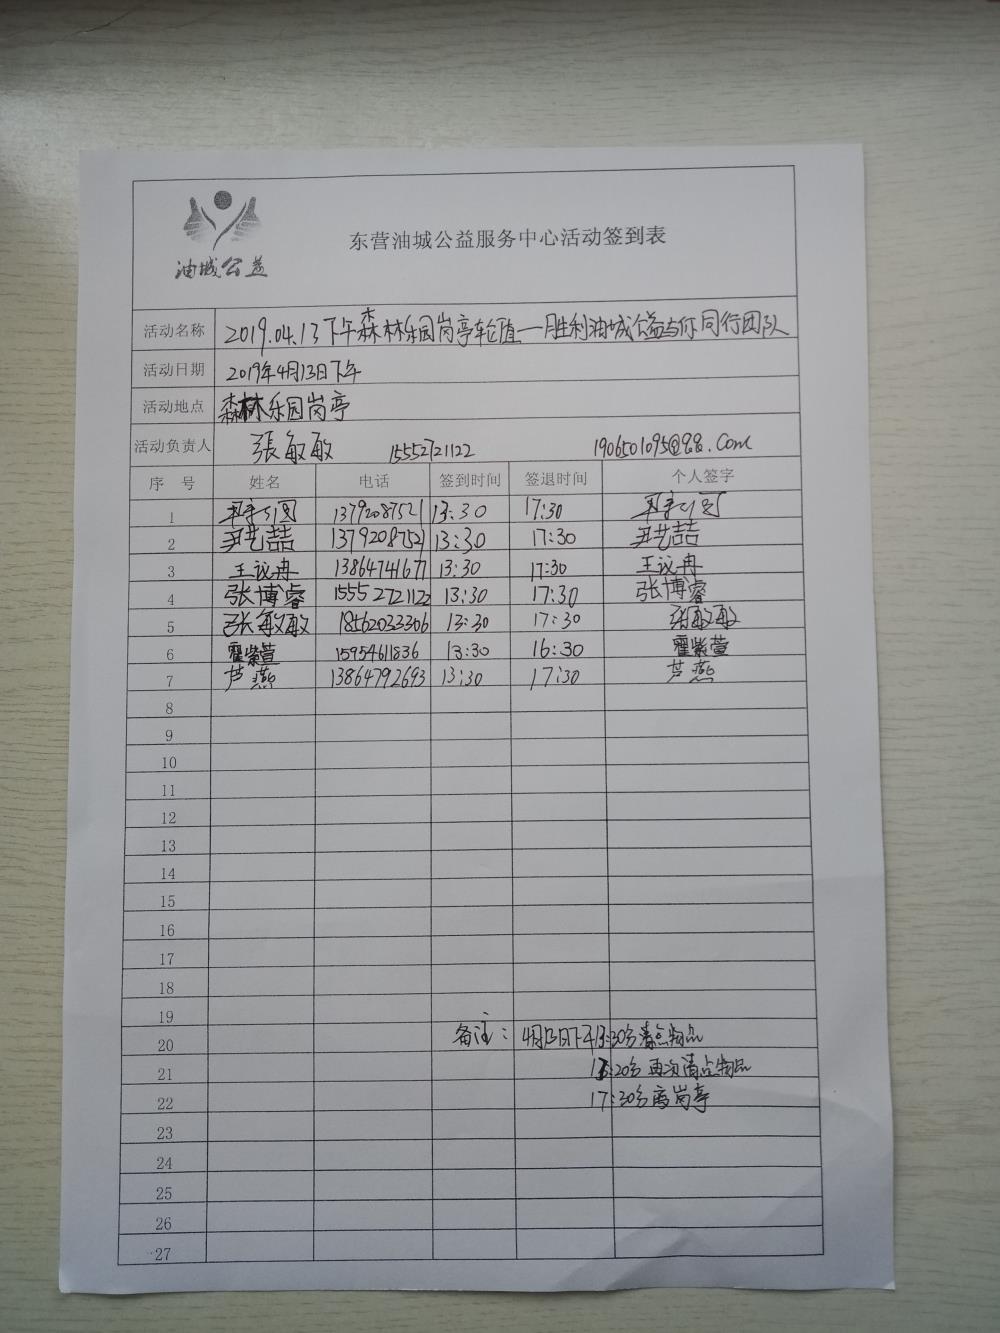 油城公益
东营油城公益服务中心活动签到表
活动名称 2019.04.13下午森林乐园岗亭轮值—胜利油城公益与你同行团队
活动日期 2019年4月13日下午
活动地点 森林乐园岗亭
活动负责人 張敏敏 15552721122 1906501095@qq.com
序 号 姓名 电话 签到时间 签退时间 个人签字
1 13792087521 13:30 17:30
2 尹艺喆 13792087521 13:30 17:30 尹艺喆
3 王议冉 13864741677 13:30 17:30 王议冉
4 张博睿 15552721122 13:30 17:30 张博睿
5 张敏敏 18562033306 13:30 17:30 张敏敏
6 霍紫萱 15954611836 13:30 16:30 霍紫萱
7 芦燕 13864792693 13:30 17:30 芦燕
8
9
10
11
12
13
14
15
16
17
18
19
20 备注: 4月13日下午13:30分清点物品
21 :20分再次清点物品
22 17:30分离岗亭
23
24
25
26
27